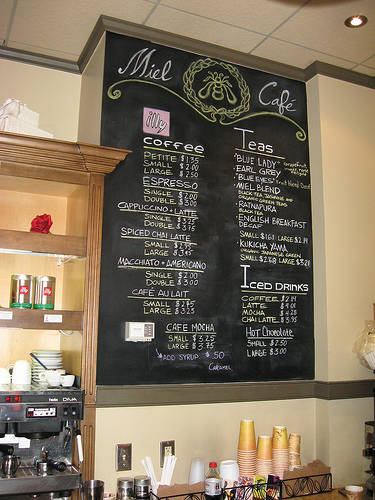 Miel Café
illy
coffee
PETITE $1.35
SMALL $2.00
LARGE $2.50
ESPRESSO
SINGLE $2.00
DOUBLE $3.00
CAPPUCCINO + LATTE
SINGLE
DOUBLE $3.75
SPICED CHAI LATTE
SMALL
LARGE $3.45
MACCHIATO + AMERICANO
SINGLE $2.00
DOUBLE $3.00
CAFÉ AU LAIT
SMALL $2.75
LARGE $3.25
CAFE MOCHA
SMALL $3.25
LARGE $3.75
*ADD SYRUP $.50
Caramel
Teas
"BLUE LADY"
EARL GREY
"BLUE EYES" fruit blend Decaf
MIEL BLEND
BLACK TEA, JASMINE AND
ORGANIC GREEN TEAS
RATNAPURA
BLACK TEA
ENGLISH BREAKFAST
DECAF
SMALL $1.61 LARGE $2.14
KUKICHA YAMA
ORGANIC JAPANESE GREEN
SMALL $2.68 LARGE $3.21
ICED DRINKS
COFFEE $2.14
LATTE $4.01
MOCHA $4.28
CHAI LATTE $3.95
Hot Chocolate
SMALL $2.50
LARGE $3.00
DIVA